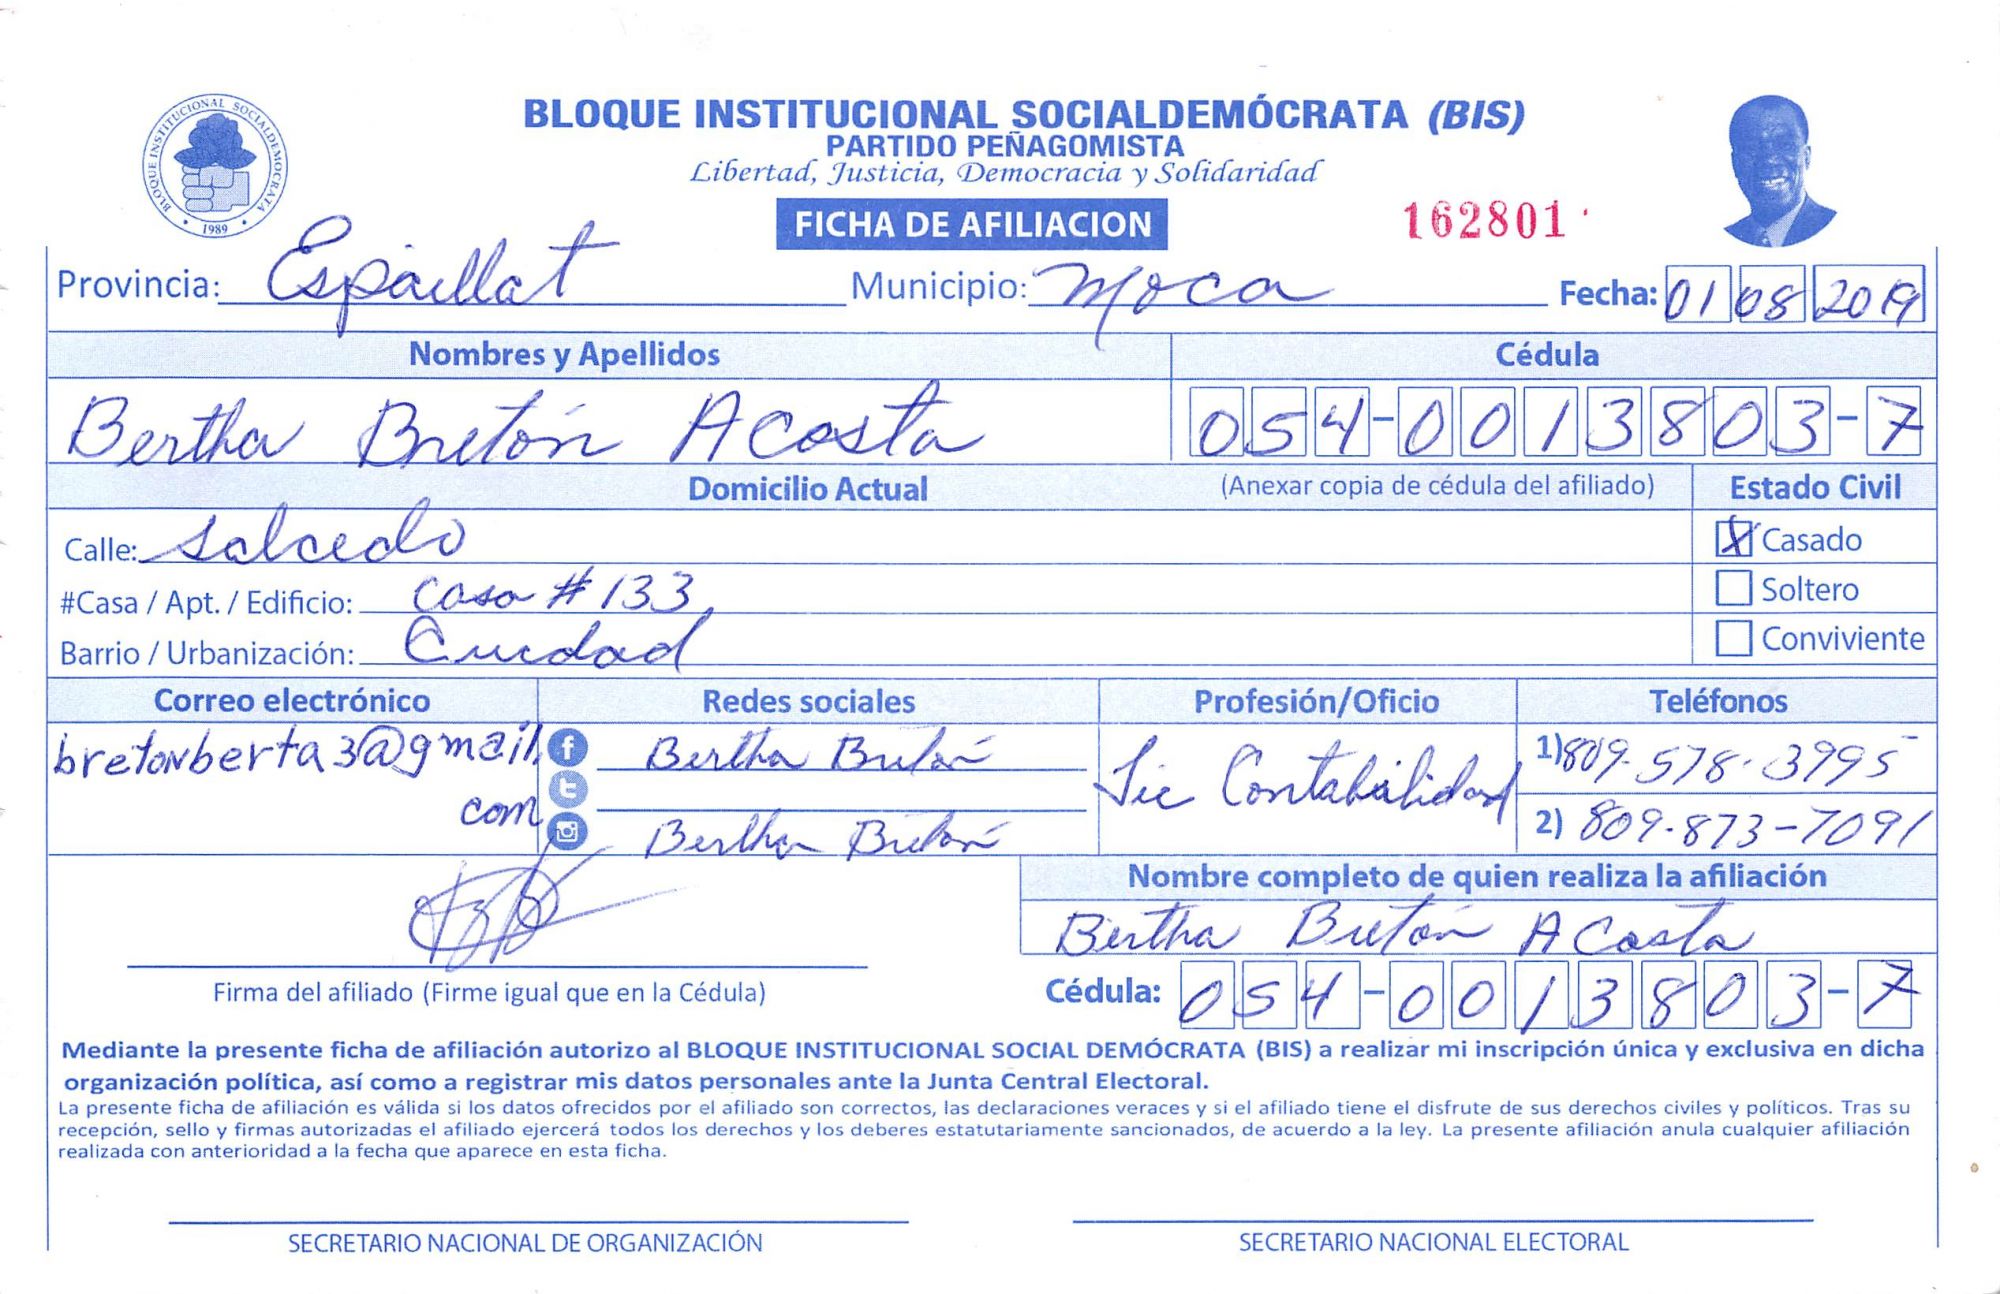 BLOQUE INSTITUCIONAL SOCIALDEMÓCRATA (BIS)
PARTIDO PEÑAGOMISTA
Libertad, Justicia, Democracia y Solidaridad
BLOQUE INSTITUCIONAL SOCIALDEMOCRATA
• 1989 •
FICHA DE AFILIACION
162801
Provincia: Espaillat Municipio: Moca Fecha: 01 08 2019
Nombres y Apellidos Cédula
Bertha Bretón Acosta 054-0013803-7
Domicilio Actual (Anexar copia de cédula del afiliado) Estado Civil
Calle: Salcedo X Casado
#Casa / Apt. / Edificio: Casa # 133 Soltero
Barrio / Urbanización: Ciudad Conviviente
Correo electrónico Redes sociales Profesión/Oficio Teléfonos
bretonberta3@gmail. Bertha Bretón Lic Contabilidad 1) 809-578-3995
com Bertha Bretón 2) 809-873-7091
Nombre completo de quien realiza la afiliación
Bertha Bretón Acosta
Firma del afiliado (Firme igual que en la Cédula) Cédula: 054-0013803-7
Mediante la presente ficha de afiliación autorizo al BLOQUE INSTITUCIONAL SOCIAL DEMÓCRATA (BIS) a realizar mi inscripción única y exclusiva en dicha
organización política, así como a registrar mis datos personales ante la Junta Central Electoral.
La presente ficha de afiliación es válida si los datos ofrecidos por el afiliado son correctos, las declaraciones veraces y si el afiliado tiene el disfrute de sus derechos civiles y políticos. Tras su
recepción, sello y firmas autorizadas el afiliado ejercerá todos los derechos y los deberes estatutariamente sancionados, de acuerdo a la ley. La presente afiliación anula cualquier afiliación
realizada con anterioridad a la fecha que aparece en esta ficha.
SECRETARIO NACIONAL DE ORGANIZACIÓN SECRETARIO NACIONAL ELECTORAL